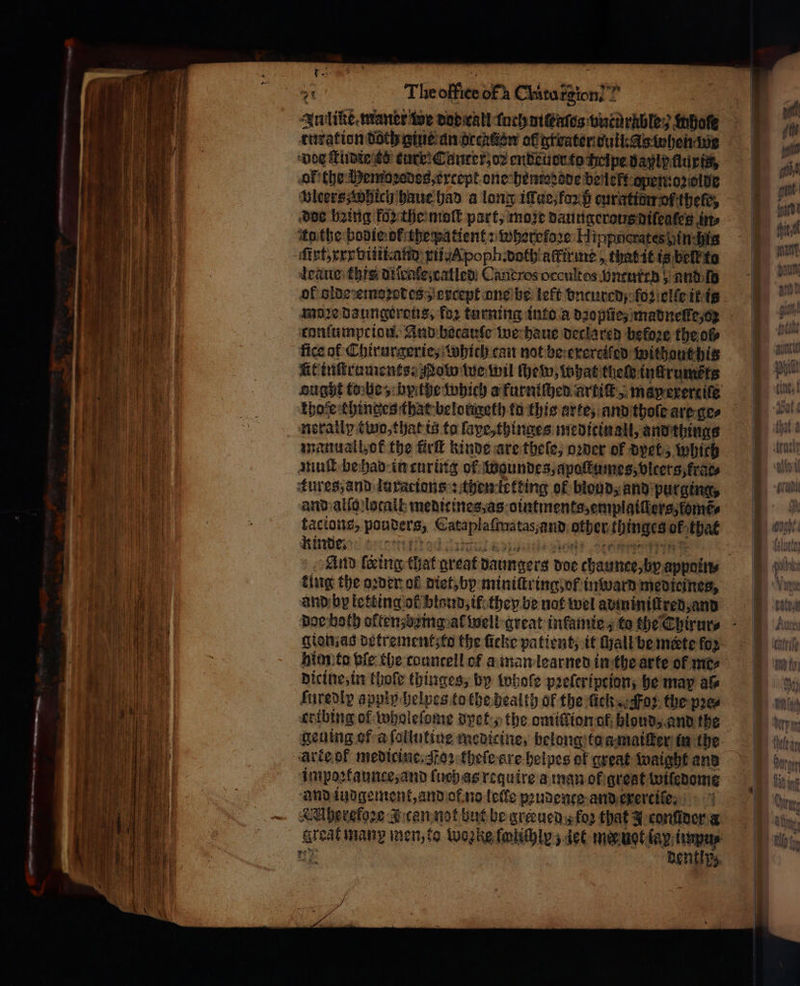 The office of a Chirurgion.
In like maner we doe call such diseases vncurable, whose
curation doth giue an occasion of greater euil: As when we
doe studie to cure a Cancer, or endeuor to helpe dayly fluxis,
of the Hemorodes, except one hemorode be left open: or olde
vlcers, which haue had a long issue, for ẏ curation of these,
doe bring for the most part, more daungerous diseases in-
to the bodie of the patient: wherefore Hippocrates, in his
first, xxxviii. and xii. Apoph. doth affirme, that it is best to
leaue this disease, called Cancros occultos vncured, and so
of olde emorodes, except one be left vncured, for else it is
more daungerous, for turning into a dropsie, madnesse, or
consumpcion. And because we haue declared before the of-
fice of Chirurgerie, which can not be exercised without his
fit instruments: Now we wil shew, what these instrumēts
ought to be, by the which a furnished artist, may exercise
those thinges that belongeth to this arte, and those are ge-
nerally two, that is to saye, thinges medicinall, and things
manuall, of the first kinde are these, order of dyet, which
must be had in curing of woundes, apostumes, vlcers, frac-
tures, and luxacions: then letting of bloud, and purging,
and also locall medicines, as ointments, emplaisters, fomē-
tacions, pouders, Cataplasmatas, and other thinges of that
kinde.
And seeing that great daungers doe chaunce, by appoin-
ting the order of diet, by ministring, of inward medicines,
and by letting of bloud, if they be not wel administred, and
doe both often, bring as well great infamie, to the Chirur-
gion, as detrement, to the sicke patient, it shall be meete for
him to vse the councell of a man learned in the arte of me-
dicine, in those thinges, by whose prescripcion, he may as-
suredly apply helpes to the health of the sick. For the pre-
cribing of wholesome dyet, the omission of bloud, and the
geuing of a sollutiue medicine, belong to a maister in the
arte of medicine. For these are helpes of great waight and
importaunce, and such as require a man of great wisedome
and iudgement, and of no lesse prudence and exercise.
Wherefore I can not but be greeued, for that I consider a
great many men, to worke foolishly, let mee not say, impu-
dently,